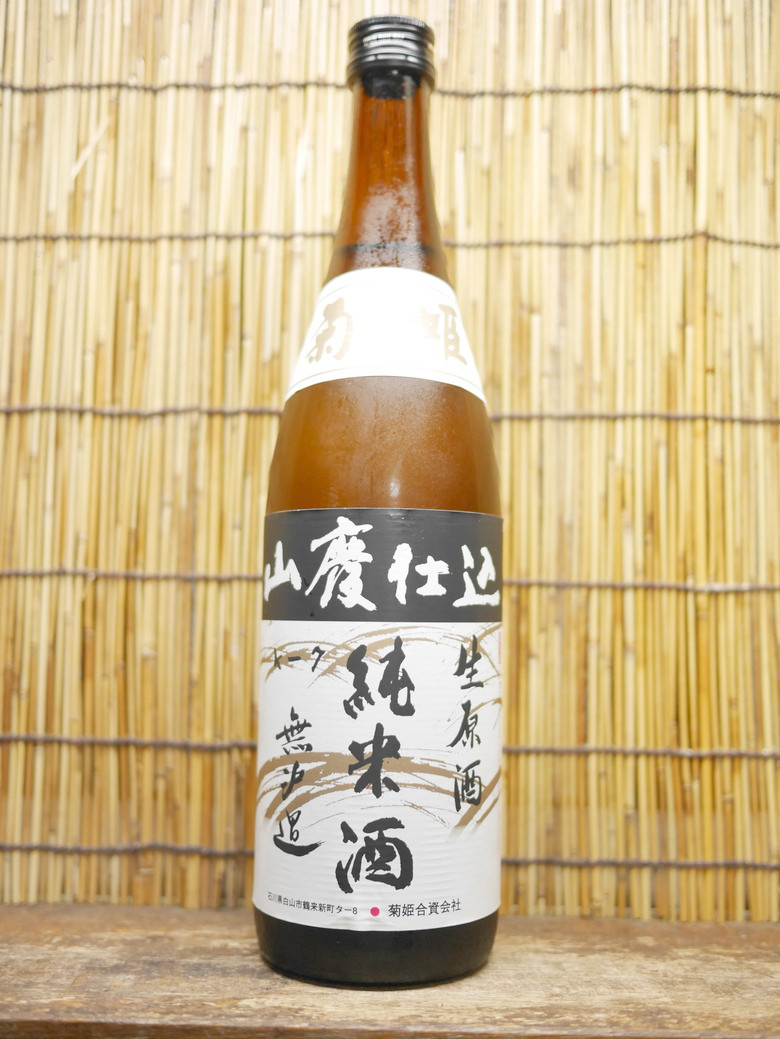 菊姫
山廃仕込
生原酒
純米酒
無汐過
石川県白山市鶴来新町タ－8 菊姫合資会社